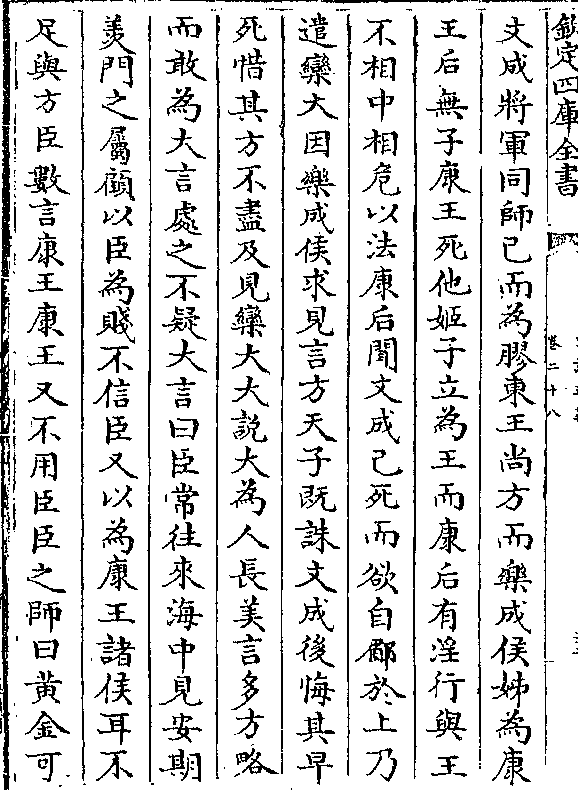 欽定四庫全書
卷二十八
文成將軍同師已而為膠東王尚方而樂成侯姊為康
王后無子康王死他姬子立為王而康后有淫行與王
不相中相危以法康后聞文成已死而欲自郿於上乃
遣欒大因樂成侯求見言方天子既誅文成後悔其早
死惜其方不盡及見欒大大說大為人長美言多方略
而敢為大言處之不疑大言曰臣常往來海中見安期
羨門之屬顧以臣為賤不信臣又以為康王諸侯耳不
足與方臣數言康王康王又不用臣臣之師曰黃金可